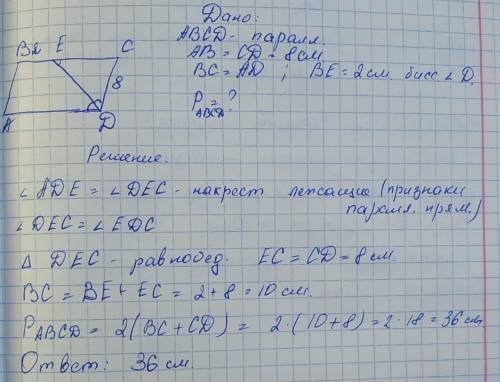 Дано:
ABCD - паралл.
AB = CD = 8 см
BC = AD ; BE = 2 см. бисс ∠ D.
P ABCD = ?
B 2 E C
8
A D
Решение.
∠ ADE = ∠ DEC - накрест лежащие (признаки
паралл. прям.)
∠ DEC = ∠ EDC
Δ DEC - равнобед. EC = CD = 8 см.
BC = BE + EC = 2 + 8 = 10 см.
P ABCD = 2(BC + CD) = 2·(10+8) = 2·18 = 36 см
Ответ: 36 см.